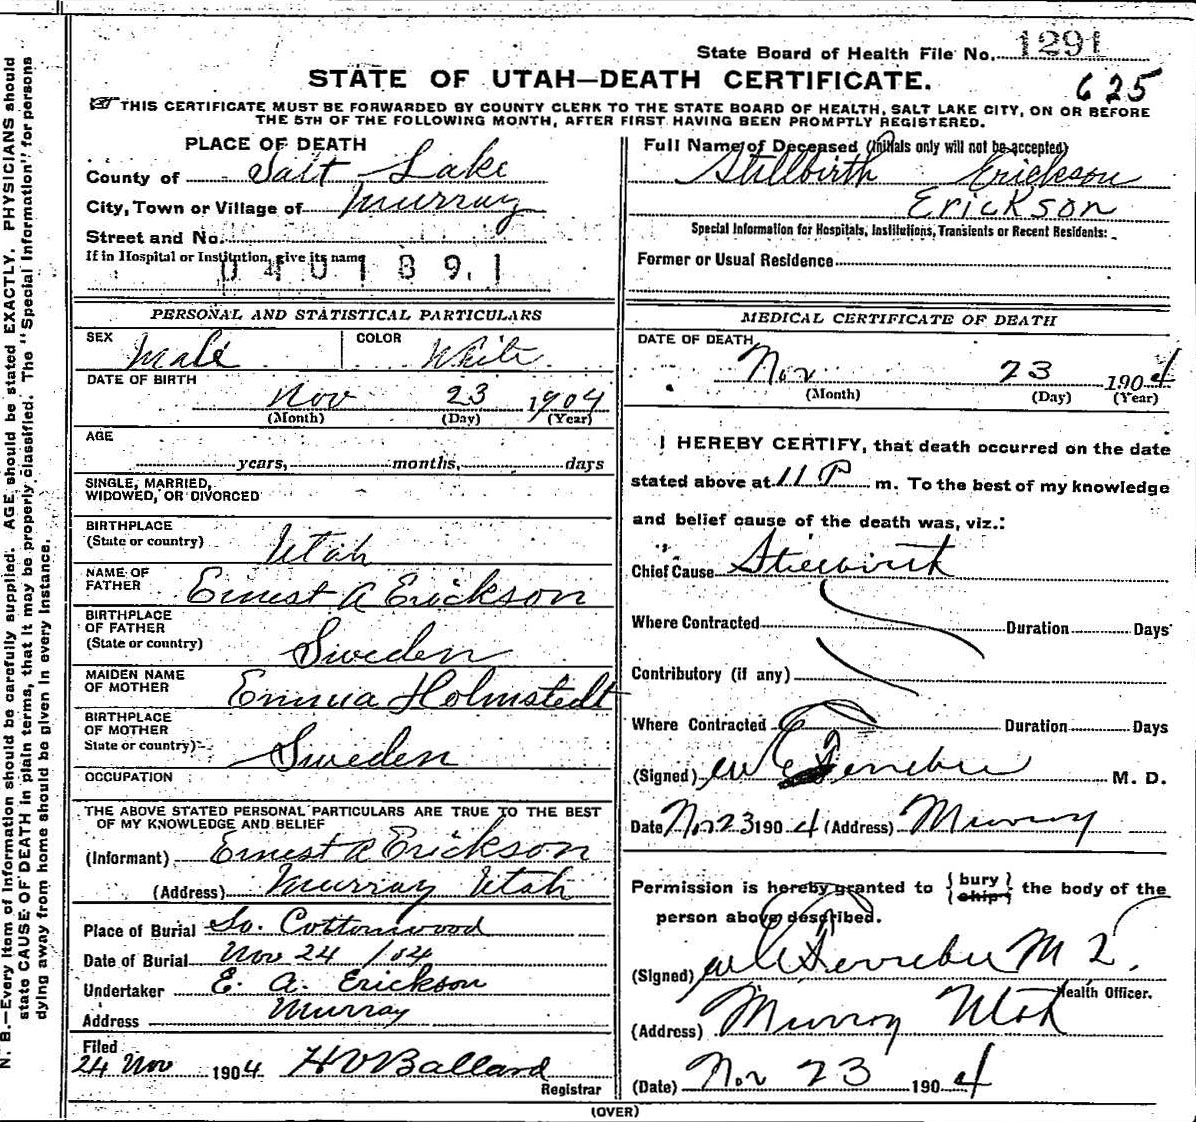 State Board of Health File No. 1291
625
STATE OF UTAH—DEATH CERTIFICATE.
THIS CERTIFICATE MUST BE FORWARDED BY COUNTY CLERK TO THE STATE BOARD OF HEALTH, SALT LAKE CITY, ON OR BEFORE
THE 5TH OF THE FOLLOWING MONTH, AFTER FIRST HAVING BEEN PROMPTLY REGISTERED.
PLACE OF DEATH
County of Salt Lake
City, Town or Village of Murray
Street and No.
If in Hospital or Institution, give its name
0401891
Full Name of Deceased (Initials only will not be accepted)
Stillbirth Erickson
Erickson
Special Information for Hospitals, Institutions, Transients or Recent Residents:
Former or Usual Residence
PERSONAL AND STATISTICAL PARTICULARS
SEX Male COLOR White
DATE OF BIRTH
Nov 23 1904
(Month) (Day) (Year)
AGE
years, months, days
SINGLE, MARRIED,
WIDOWED, OR DIVORCED
BIRTHPLACE
(State or country) Utah
NAME OF
FATHER Ernest A Erickson
BIRTHPLACE
OF FATHER
(State or country) Sweden
MAIDEN NAME
OF MOTHER Emma Holmstedt
BIRTHPLACE
OF MOTHER
State or country) Sweden
OCCUPATION
THE ABOVE STATED PERSONAL PARTICULARS ARE TRUE TO THE BEST
OF MY KNOWLEDGE AND BELIEF
(Informant) Ernest A Erickson
(Address) Murray Utah
Place of Burial So. Cottonwood
Date of Burial Nov 24 /04
Undertaker E. A. Erickson
Address Murray
Filed
24 Nov 1904 H V Ballard
Registrar
MEDICAL CERTIFICATE OF DEATH
DATE OF DEATH
Nov 23 1904
(Month) (Day) (Year)
I HEREBY CERTIFY, that death occurred on the date
stated above at 11 P m. To the best of my knowledge
and belief cause of the death was, viz.:
Chief Cause Stillbirth
Where Contracted Duration Days
Contributory (if any)
Where Contracted Duration Days
(Signed) M. D.
Date Nov 23 1904 (Address) Murray
Permission is hereby granted to { bury } the body of the
{ ship }
person above described.
(Signed)
Health Officer.
(Address) Murray Utah
(Date) Nov 23 1904
(OVER)
N. B.—Every item of information should be carefully supplied. AGE should be stated EXACTLY. PHYSICIANS should
state CAUSE OF DEATH in plain terms, that it may be properly classified. The "Special Information" for persons
dying away from home should be given in every instance.